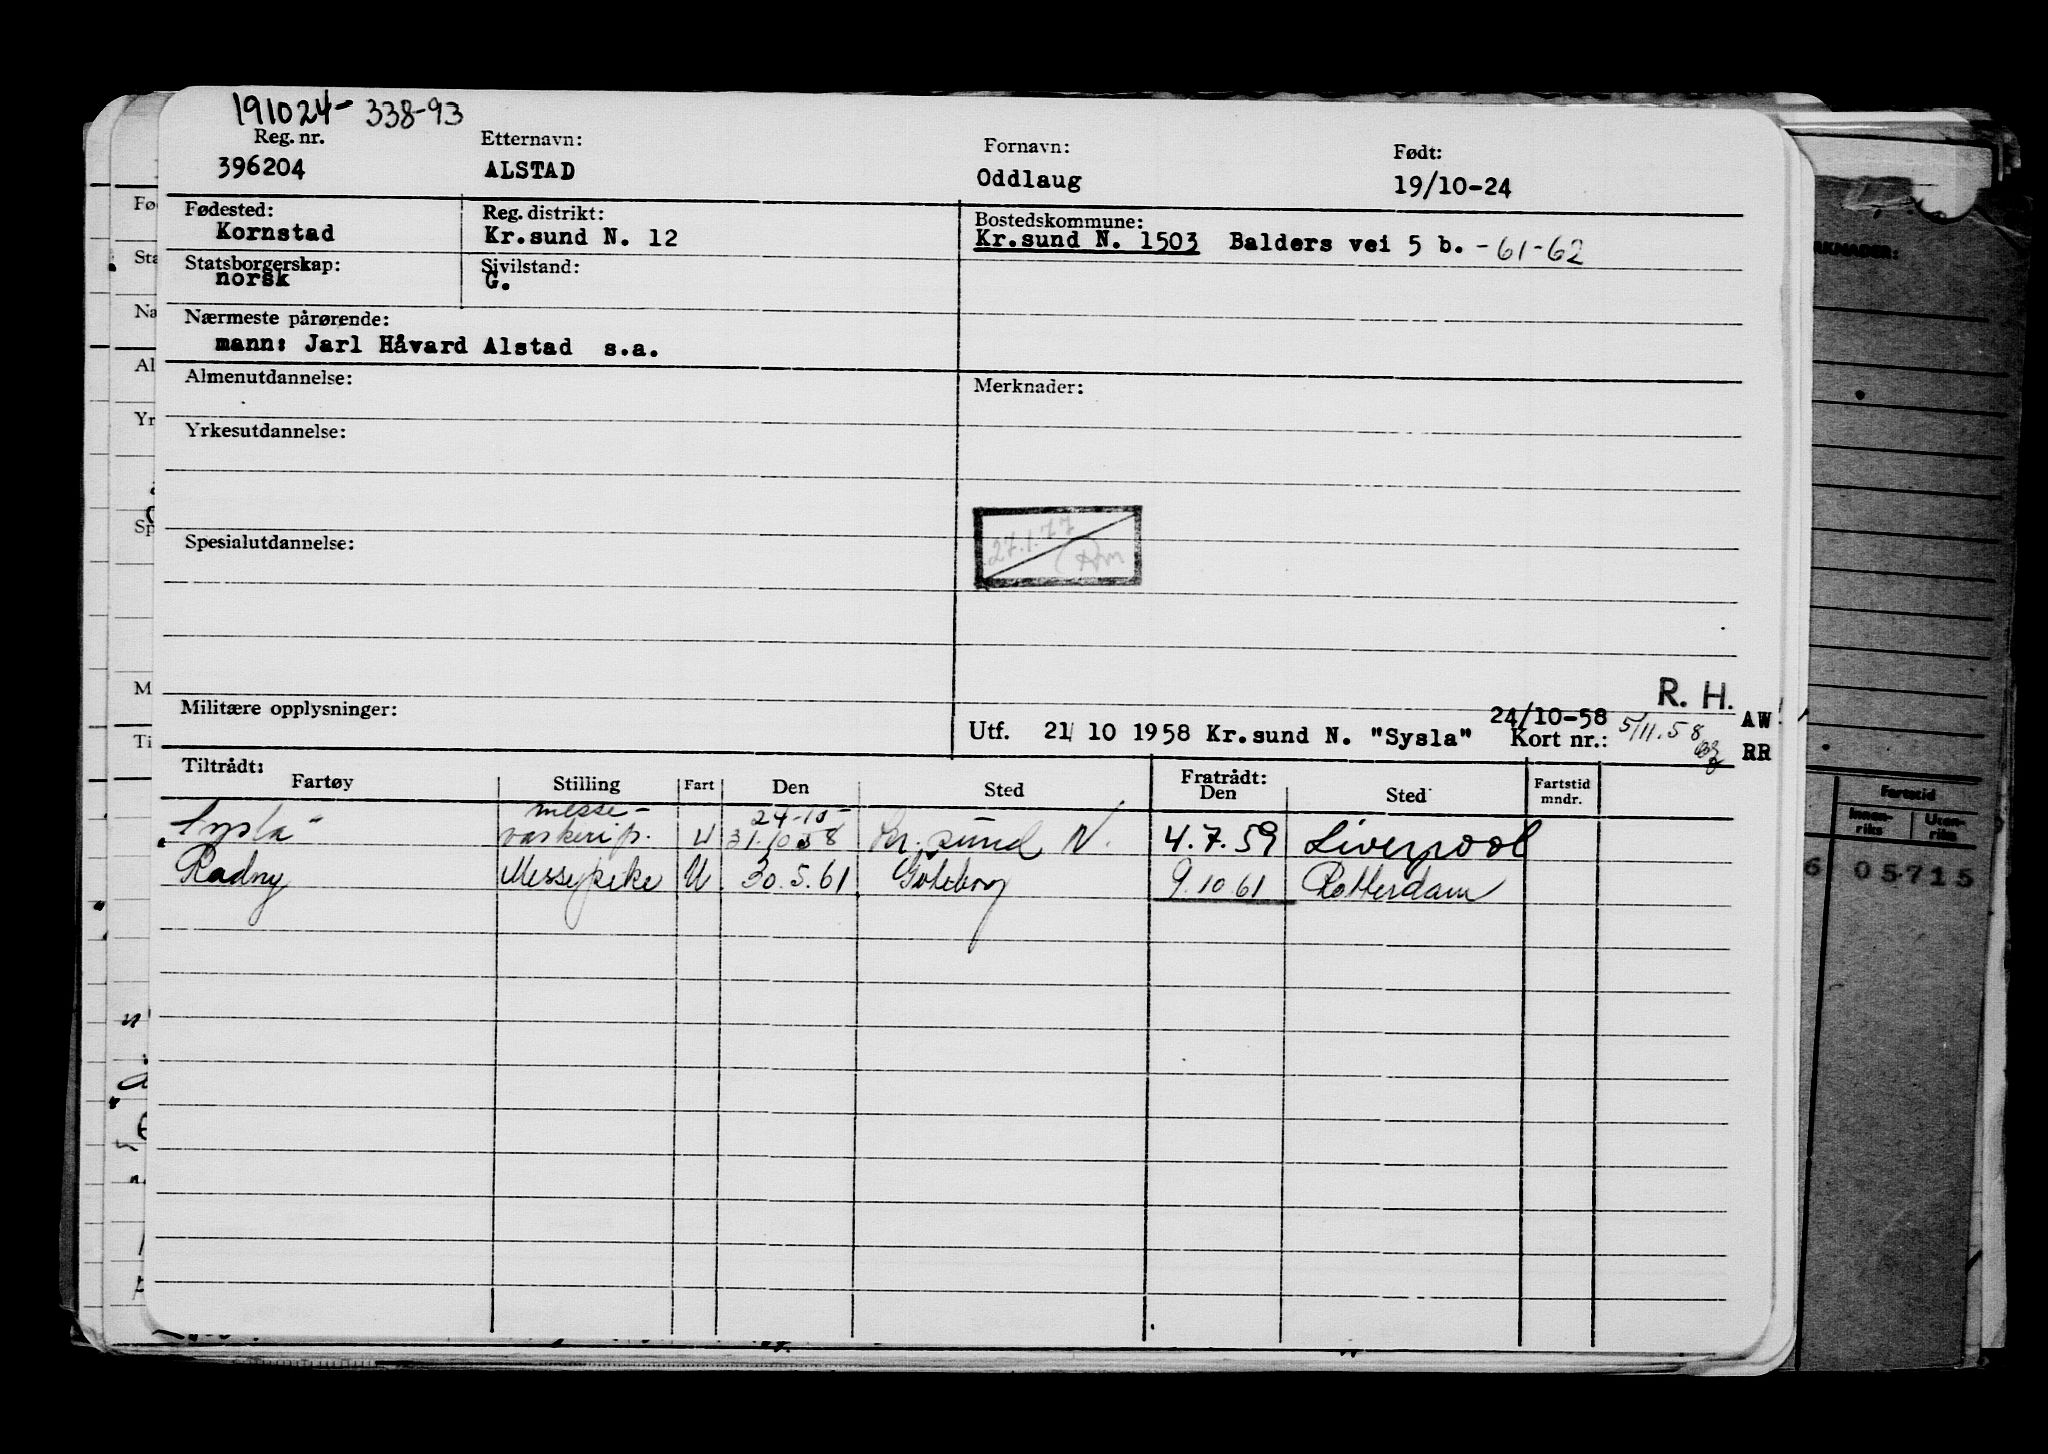 191024-338-93
Reg. nr. Etternavn: Fornavn: Født:
396204 ALSTAD Oddlaug 19/10-24
Fødested: Reg. distrikt: Bostedskommune:
Kornstad Kr.sund N. 12 Kr.sund N. 1503 Balders vei 5 b. -61-62
Statsborgerskap: Sivilstand:
norsk G.
Nærmeste pårørende:
mann: Jarl Håvard Alstad s.a.
Almenutdannelse: Merknader:
Yrkesutdannelse:
27.1.77
Spesialutdannelse:
R. H.
Militære opplysninger: 24/10-58 5/11.58 AW
Utf. 21 10 1958 Kr.sund N. "Sysla" Kort nr.: RR
Tiltrådt: Fratrådt:
Fartøy Stilling Fart Den Sted Den Sted Fartstid mndr.
messe- 24-10-
"Sysla" vaskerip. U 31.10.58 Kr. sund N. 4.7.59 Liverpool
Radny Messepike U 30.5.61 Göteborg 9.10.61 Rotterdam
Fø
Sta
Na
Al
Yr
Sp
M
Ti
RKNADER:
Fartstid
Innen-riks Uten-riks
6 05715